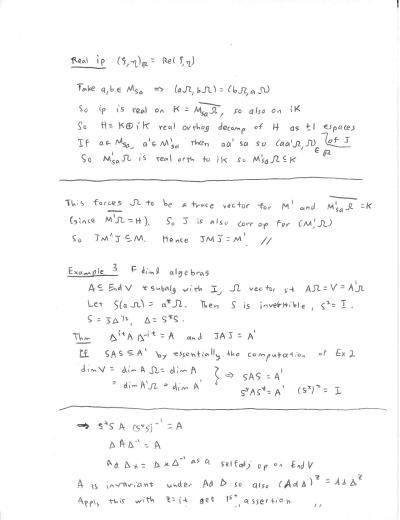 Real ip (ξ,η)_ℝ = Re(ξ,η)
Take a,b ∈ M_sa ⟹ (aΩ,bΩ) = (bΩ,aΩ)
So ip is real on K = \overline{M_sa Ω}, so also on iK
So H = K ⊕ iK real orthog decomp of H as ±1 espaces of J
If a ∈ M_sa, a' ∈ M'_sa then aa' sa so (aa'Ω,Ω) ∈ ℝ
So M'_saΩ is real orth to iK so M'_saΩ ⊆ K
This forces Ω to be a trace vector for M' and \overline{M'_sa Ω} = K
(since \overline{M'Ω} = H). So J is also corr op for (M',Ω)
So JM'J ⊆ M. Hence JMJ = M'. //
Example 3 F diml algebras
A ⊆ End V *subalg with I, Ω vector st AΩ = V = A'Ω
Let S(aΩ) = a*Ω. Then S is invertible, S² = I.
S = JΔ^{1/2}, Δ = S*S.
Thm Δ^{it} A Δ^{-it} = A and JAJ = A'
Pf SAS ⊆ A' by essentially the computation of Ex 2
dim V = dim AΩ = dim A
= dim A'Ω = dim A' } ⟹ SAS = A'
S*AS* = A' (S*)² = I
⟹ S*S A (S*S)^{-1} = A
ΔAΔ^{-1} = A
Ad Δ x = ΔxΔ^{-1} as a selfadj op on End V
A is invariant under Ad Δ so also (Ad Δ)^z = Ad Δ^z
Apply this with z = it get 1st assertion //